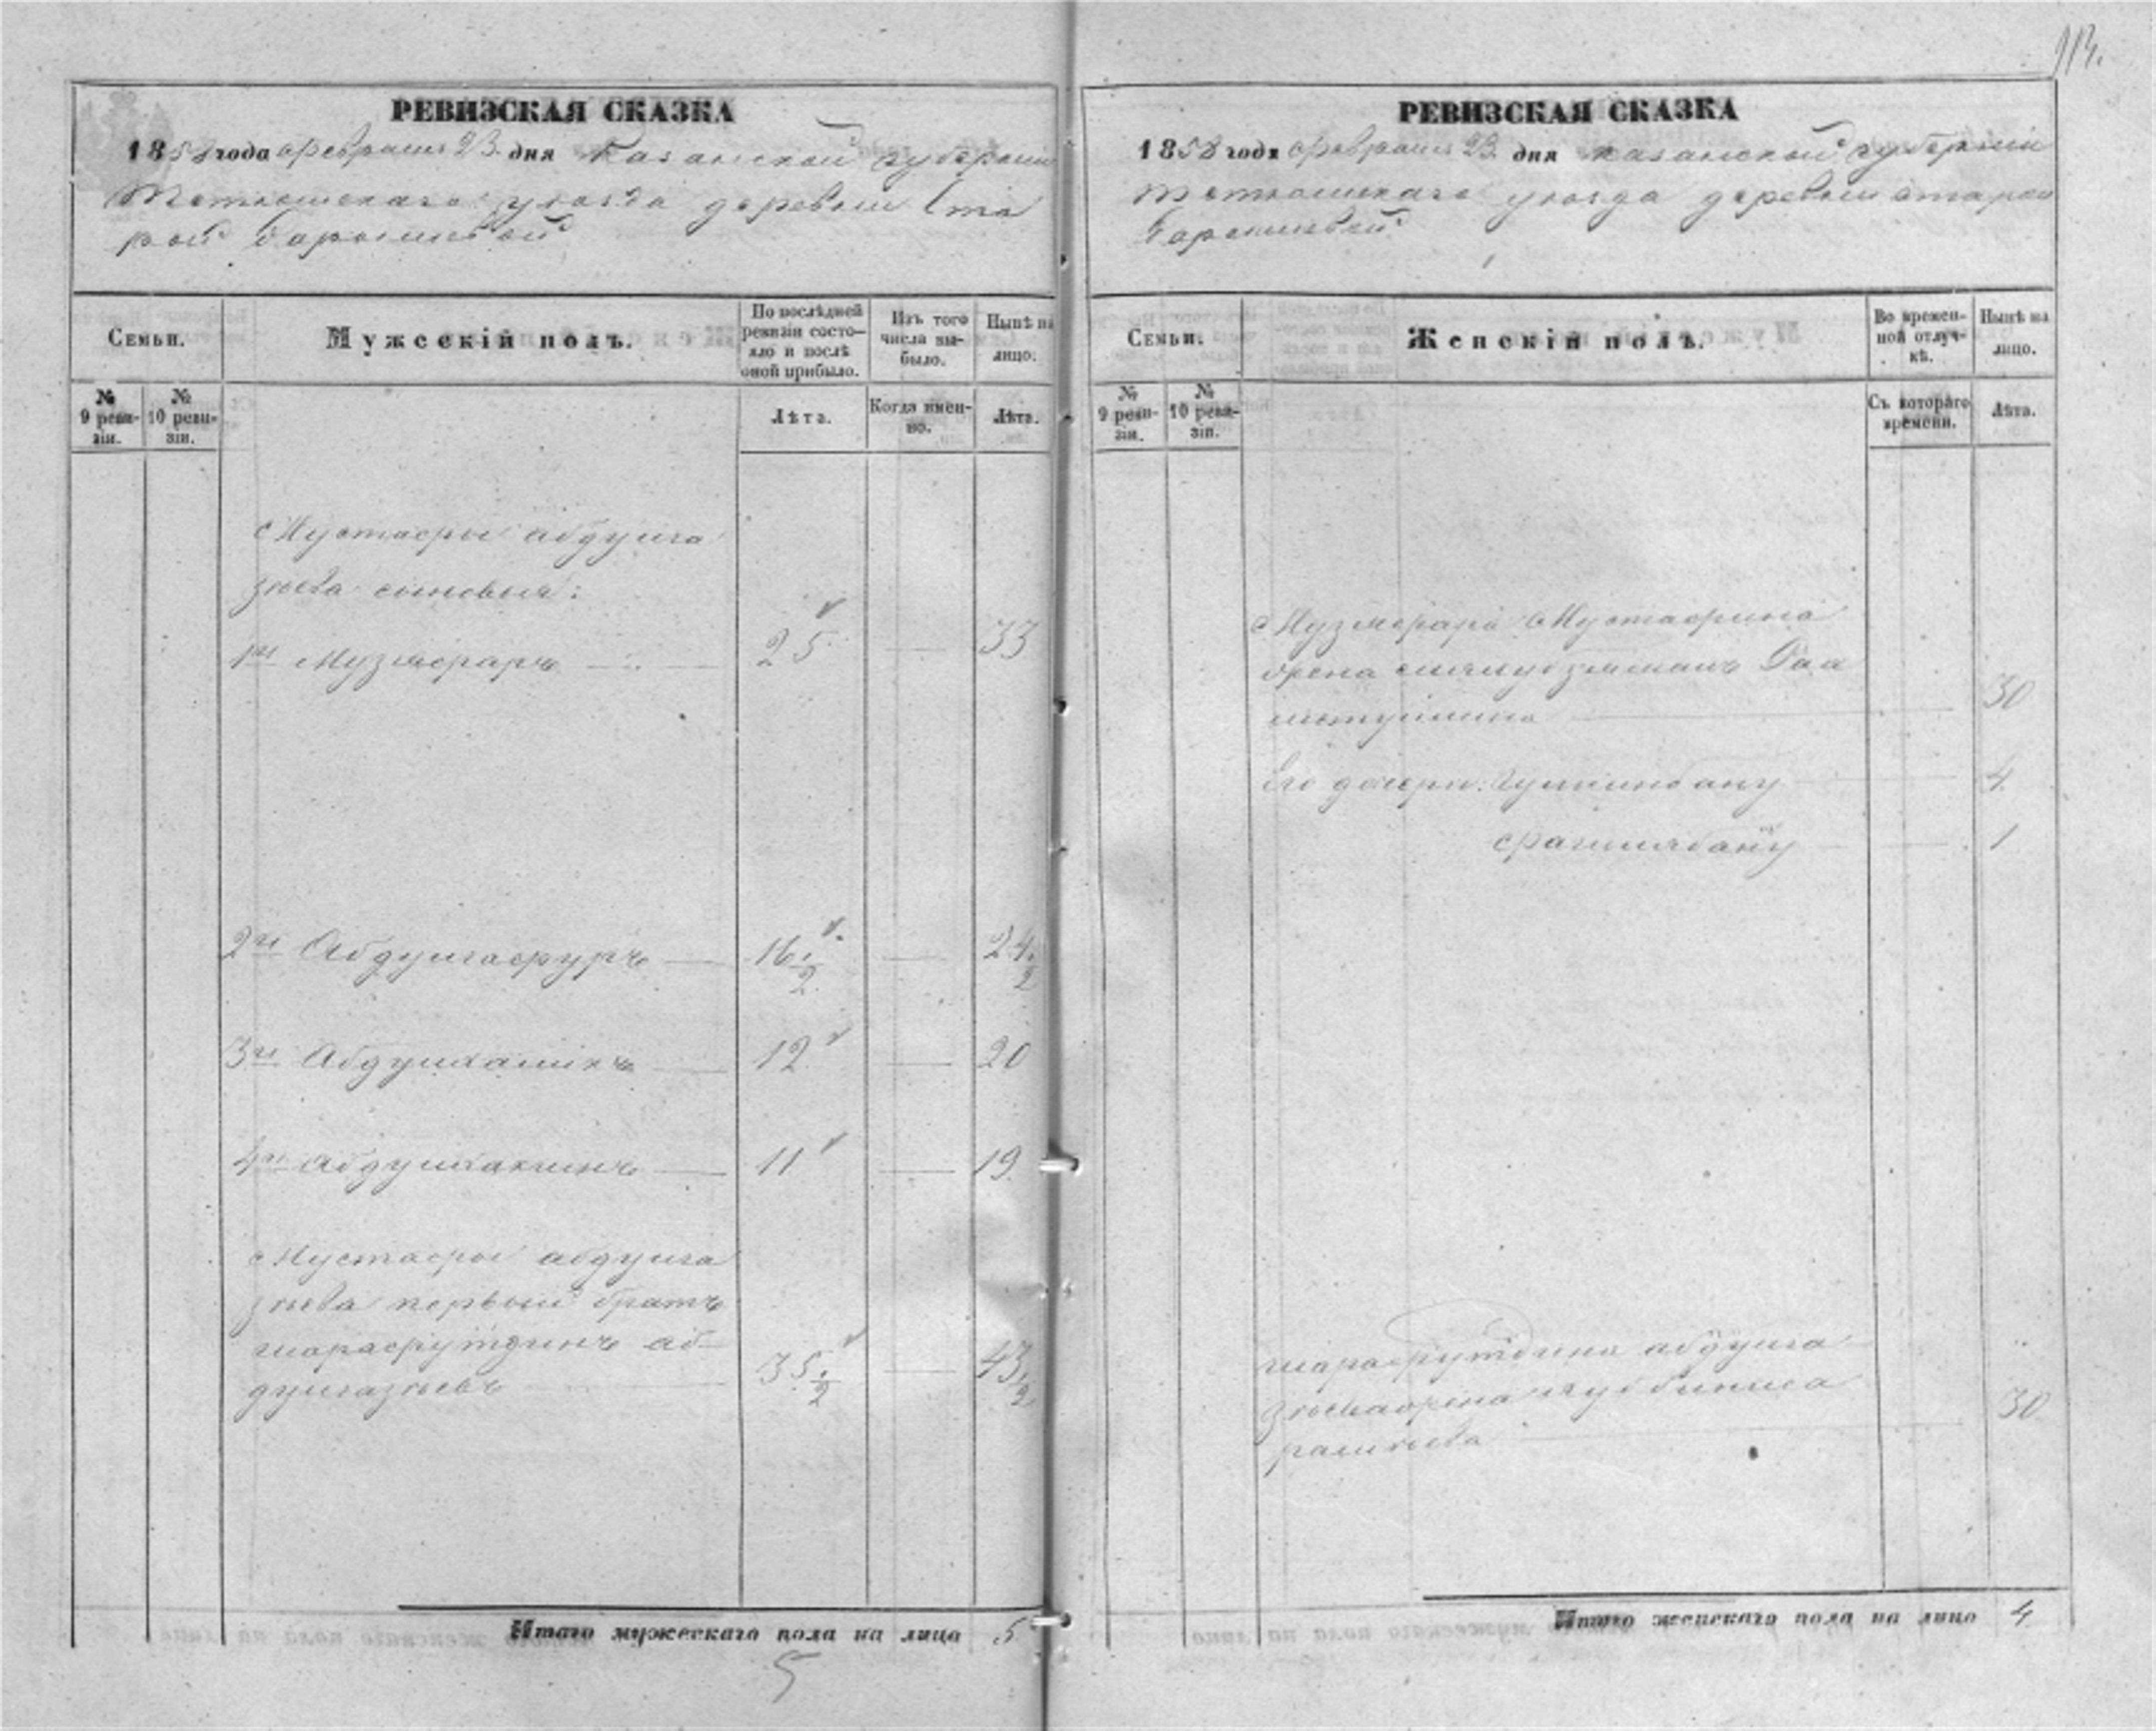 113.
РЕВИЗСКАЯ СКАЗКА
1858 года февраля 23 дня Казанской губернии
Тетюшскаго уѣзда деревни Ста
рой
Семьи.
Мужескій полъ.
По послѣдней ревизіи состояло и послѣ оной прибыло.
Изъ того числа выбыло.
Нынѣ на лицо.
№ 9 ревизіи.
№ 10 ревизіи.
Лѣта.
Когда именно.
Лѣта.
Мустафы абдулга
зѣева сыновья:
1й Музяфаръ 25 — 33
2й Абдулгафуръ 16 1/2 — 24 1/2
3й 12 — 20
4й Абдулхакимъ 11 — 19
Мустафы абдулга
зѣева первый братъ
шарафутдинъ аб-
дулгазѣевъ 35 1/2 — 43 1/2
Итого мужескаго пола на лицо 5
5
РЕВИЗСКАЯ СКАЗКА
1858 года февраля 23 дня Казанской губерніи
Тетюшскаго уѣзда деревни старой
Семьи.
Женскій полъ.
Во временной отлучкѣ.
Нынѣ на лицо.
№ 9 ревизіи.
№ 10 ревизіи.
Съ котораго времени.
Лѣта.
Музяфара Мустафина
30
Его дочери: 4
1
шарафутдина абдулга
30
Итого женскаго пола на лицо 4